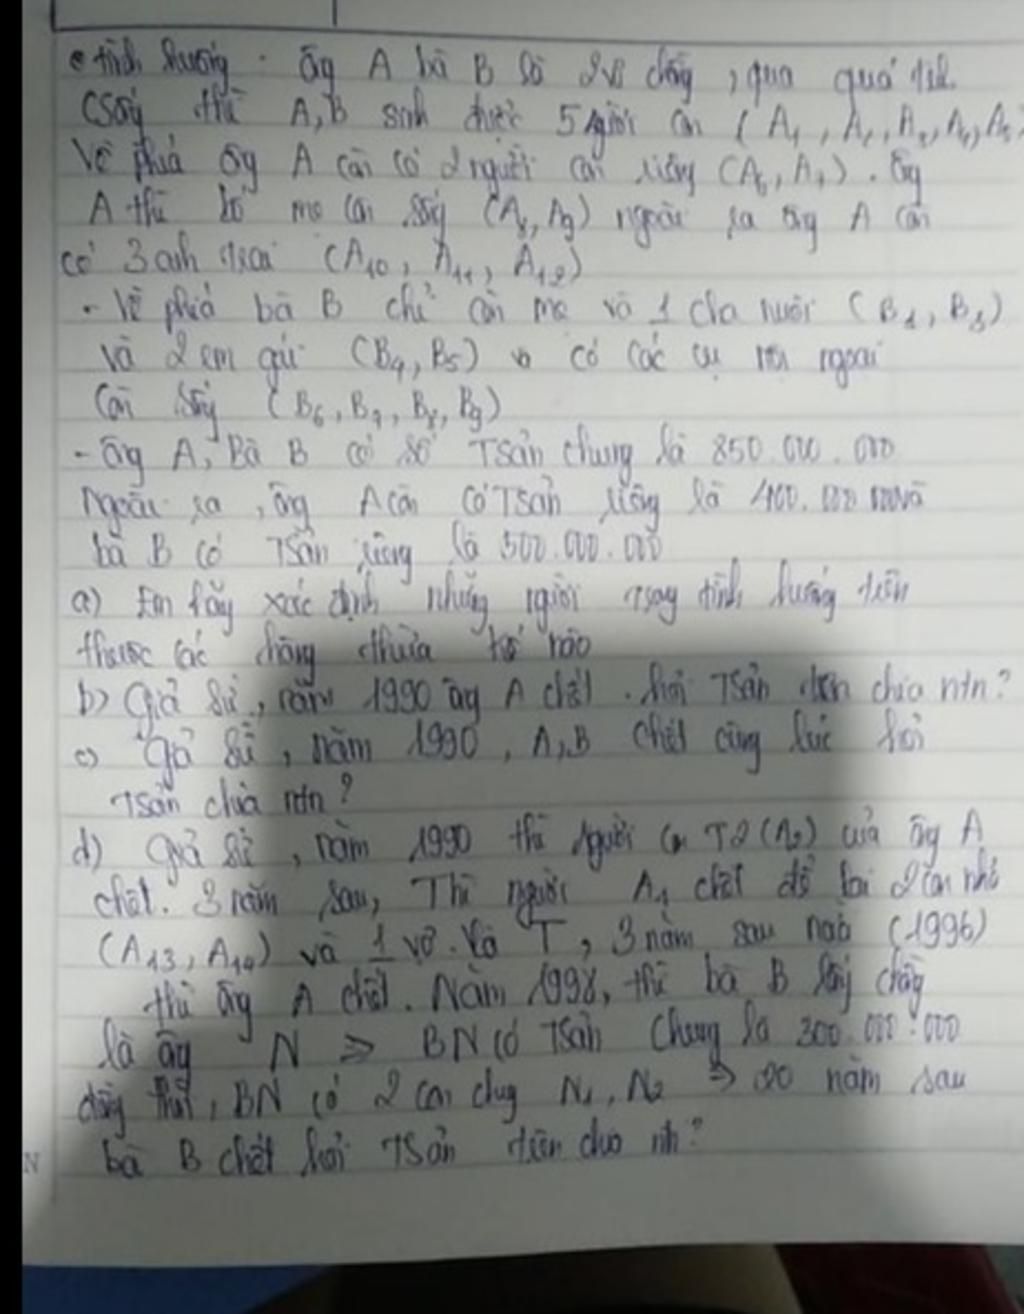 • tình huống : ông A bà B là 2 vợ chồng, qua quá
A, B sinh được 5 người con (A₁, A₂, A₃, A₄, A₅)
Về phía ông A còn có 2 người con riêng (A₆, A₇). Ông
A thì bố mẹ còn sống (A₈, A₉) ngoài ra ông A còn
có 3 anh trai (A₁₀, A₁₁, A₁₂)
- Về phía bà B chỉ còn mẹ và 1 cha nuôi
và 2 em gái (B₄, B₅) và có các cụ ngoại
còn sống (B₆, B₇, B₈, B₉)
- Ông A, Bà B có số Tsản chung là 850.000.000
Ngoài ra, ông A còn có Tsản riêng là 400.000.000 và
bà B có Tsản riêng là 500.000.000
a) Em hãy xác định những người trong tình huống trên
thuộc các hàng thừa kế nào
b) Giả sử, năm 1990 ông A chết. hỏi Tsản trên chia ntn?
c) Giả sử, năm 1990, A, B chết cùng lúc hỏi
Tsản chia ntn?
d) Giả sử, năm 1990 thì người con T2 (A₂) của ông A
chết. 3 năm sau, Thì người A₁ chết để lại 2 con nhỏ
(A₁₃, A₁₄) và 1 vợ. Và T, 3 năm sau nữa (1996)
thì ông A chết. Năm 1998, thì bà B lấy chồng
là ông N => BN có Tsản chung là 300.000.000
đồng thời, BN có 2 con chung N₁, N₂ => 20 năm sau
bà B chết hỏi Tsản trên chia